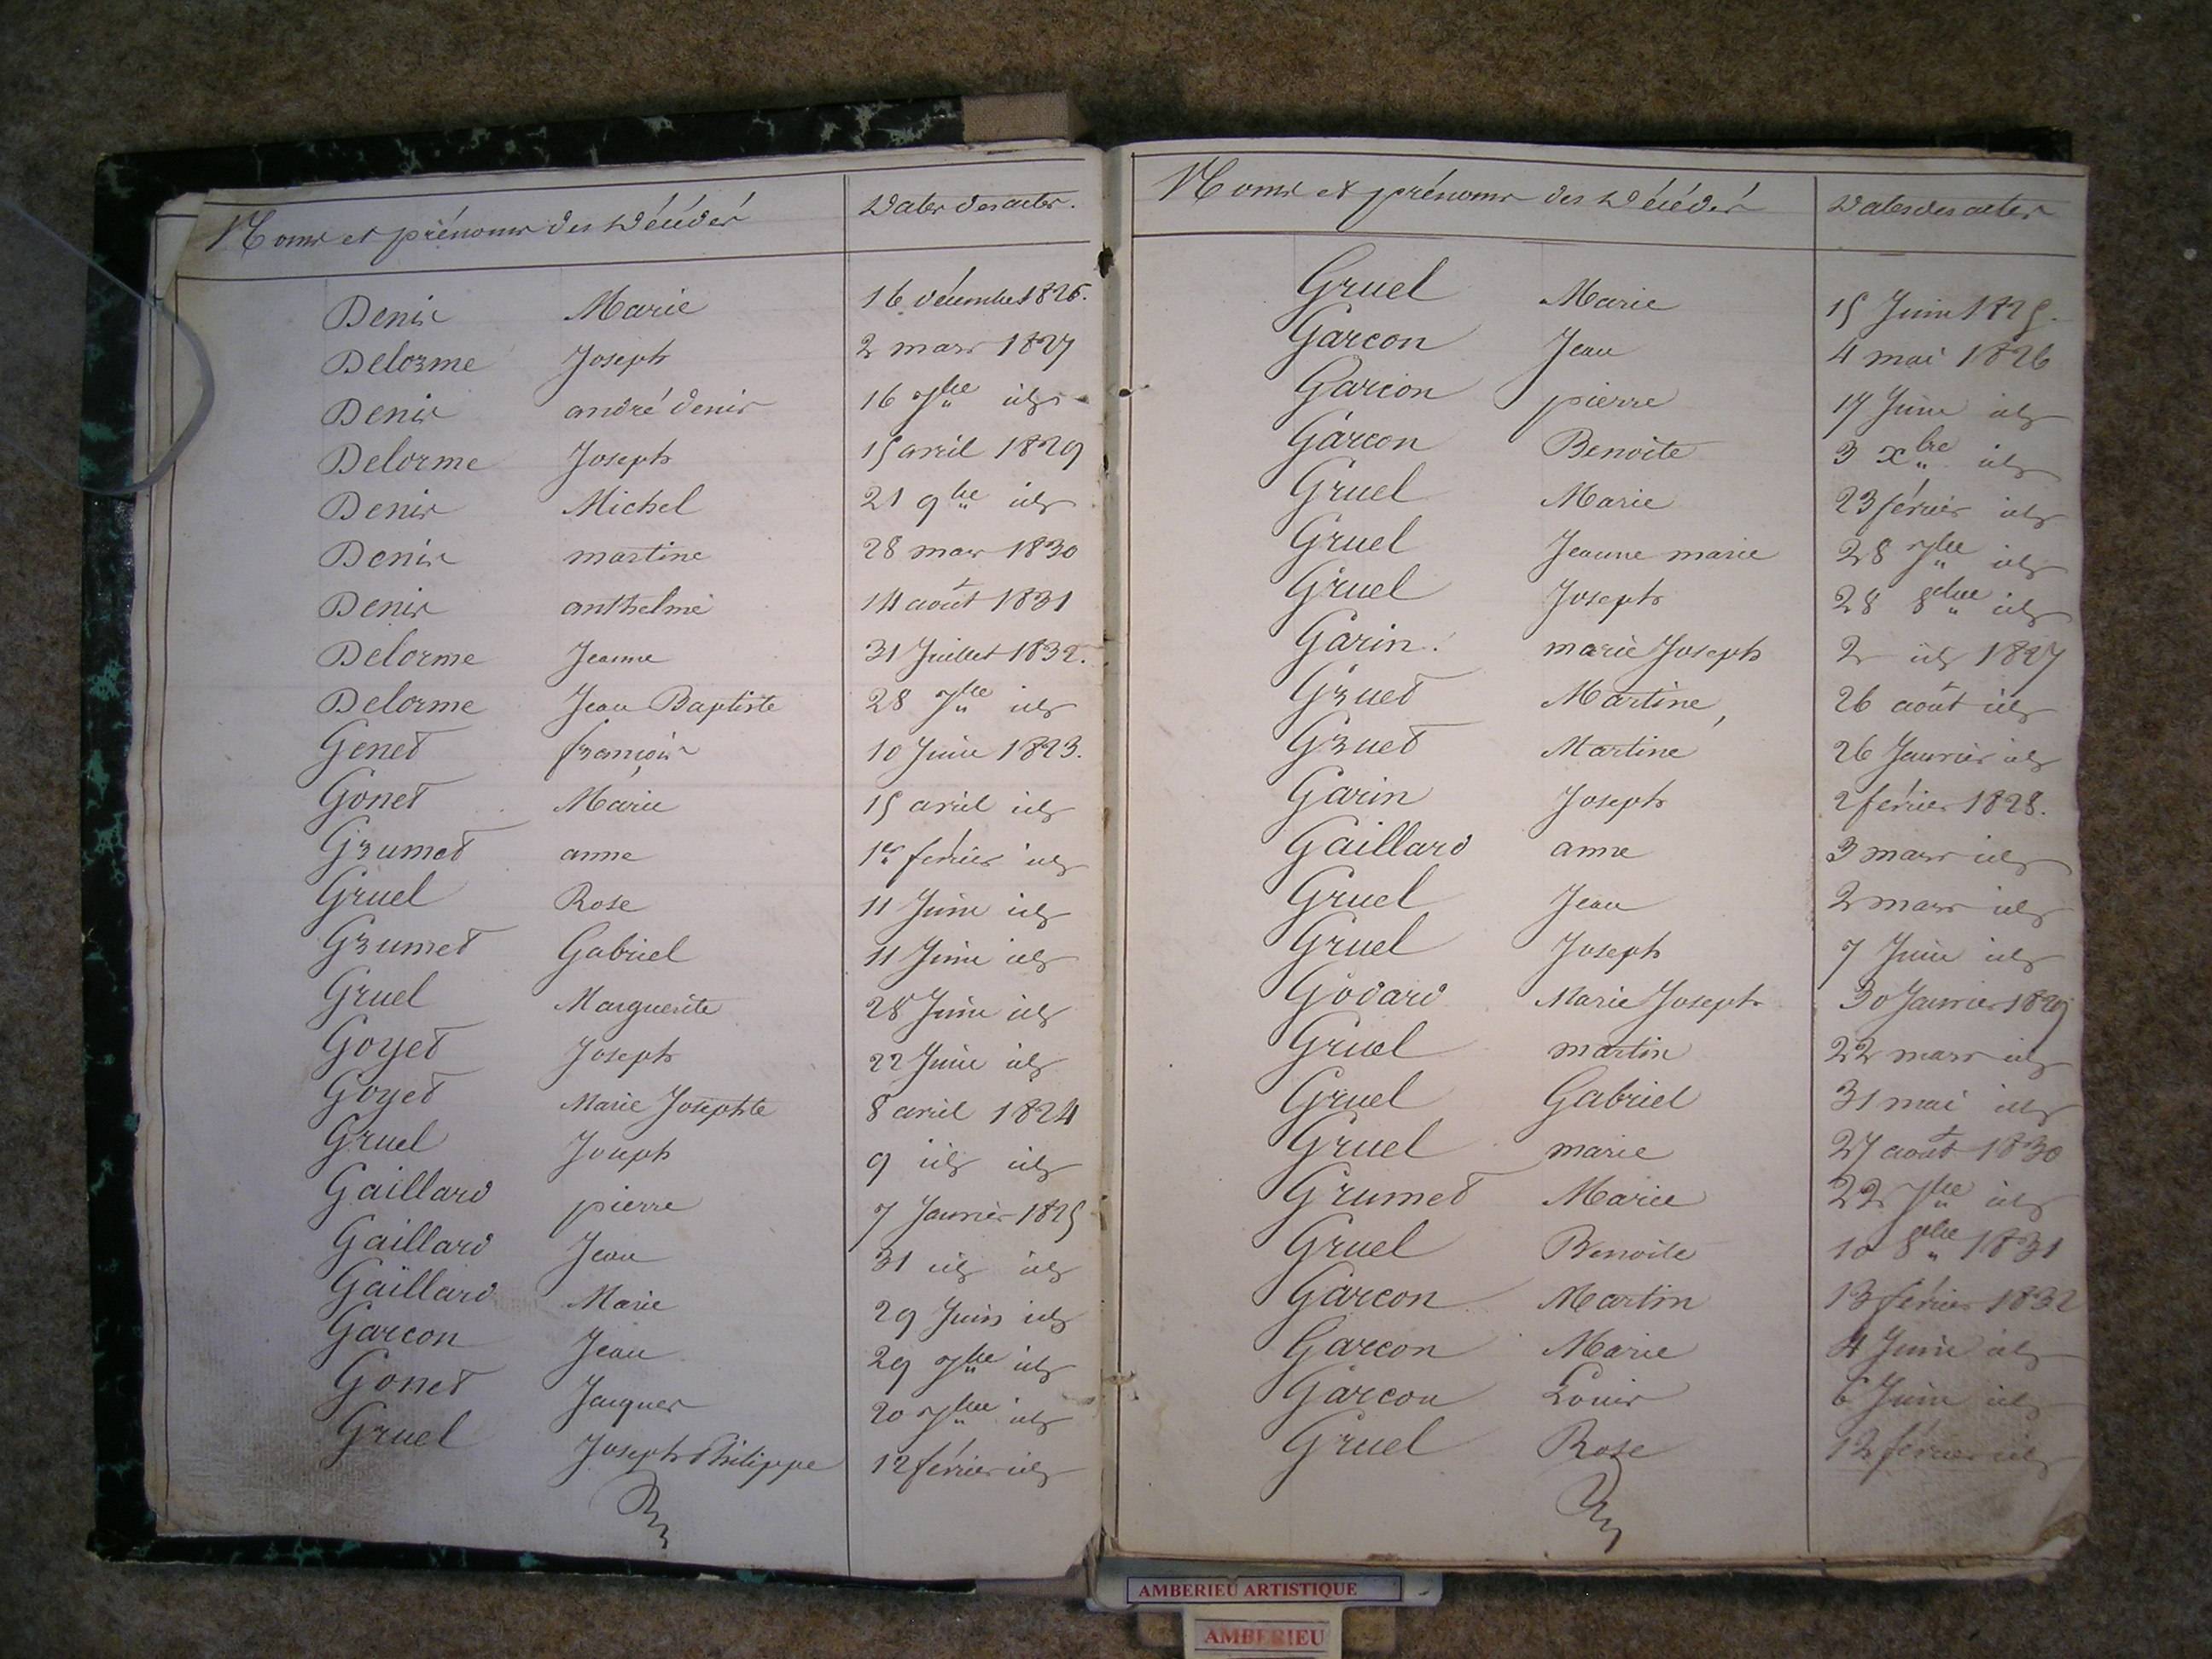 Noms et prénoms des Décédés Dates des actes.
Denis Marie 16 décembre 1826.
Delorme Joseph 2 mars 1827
Denis andré denis 16 7bre id
Delorme Joseph 15 avril 1829
Denis Michel 21 9bre id
Denis martine 28 mars 1830
Denis anthelme 14 août 1831
Delorme Jeanne 31 Juillet 1832.
Delorme Jean Baptiste 28 7bre id
Genet françois 10 Juin 1823.
Gonet Marie 15 avril id
Grumet anne 1er février id
Gruel Rose 11 Juin id
Grumet Gabriel 11 Juin id
Gruel Marguerite 28 Juin id
Goyet Joseph 22 Juin id
Goyet Marie Josephte 8 avril 1824
Gruel Joseph 9 id id
Gaillard pierre 7 Janvier 1825
Gaillard Jean 31 id id
Gaillard Marie 29 Juin id
Garcon Jean 29 7bre id
Gonet Jacques 20 7bre id
Gruel Joseph Philippe 12 févriér id
Noms et prénoms des Décédés Dates des actes
Gruel Marie 15 Juin 1825.
Garcon Jean 4 mai 1826
Garcon pierre 17 Juin id
Garcon Benoite 3 xbre id
Gruel Marie 23 février id
Gruel Jeanne marie 28 7bre id
Gruel Joseph 28 8bre id
Garin. marie Joseph 2 id 1827
Gruet Martine, 26 août id
Gruet Martine 26 Janvier id
Garin Joseph 2 février 1828.
Gaillard anne 3 mars id
Gruel Jean 2 mars id
Gruel Joseph 7 Juin id
Godard Marie Joseph 30 Janvier 1829
Gruel martin 22 mars id
Gruel Gabriel 31 mai id
Gruel marie 27 août 1830
Grumet Marie 22 7bre id
Gruel Benoite 10 8bre 1831
Garcon Martin 13 février 1832
Garcon Marie 4 Juin id
Garcon Louis 6 Juin id
Gruel Rose 12 février id
AMBERIEU ARTISTIQUE
AMBERIEU